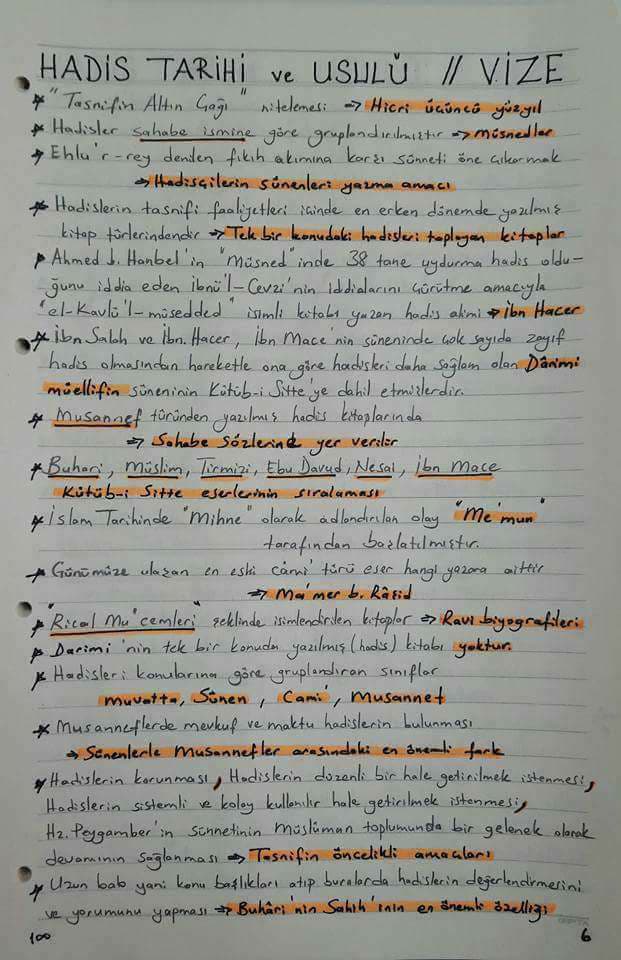 HADİS TARİHİ ve USULÜ // VİZE
* "Tasnifin Altın Çağı" nitelemesi ⇒ Hicri üçüncü yüzyıl
* Hadisler sahabe ismine göre gruplandırılmıştır ⇒ müsnedler
* Ehlu'r-rey denilen fıkıh akımına karşı sünneti öne çıkarmak
⇒ Hadisçilerin sünenleri yazma amacı
* Hadislerin tasnifi faaliyetleri içinde en erken dönemde yazılmış
kitap türlerindendir ⇒ Tek bir konudaki hadisleri toplayan kitaplar
* Ahmed b. Hanbel'in "Müsned"inde 38 tane uydurma hadis oldu-
ğunu iddia eden İbnü'l-Cevzi'nin iddialarını çürütme amacıyla
"el-Kavlü'l-müsedded" isimli kitabı yazan hadis alimi ⇒ İbn Hacer
* İbn Salah ve İbn. Hacer, İbn Mace'nin süneninde çok sayıda zayıf
hadis olmasından hareketle ona göre hadisleri daha sağlam olan Dârimi
müellifin süneninin Kütüb-i Sitte'ye dahil etmişlerdir.
* Musannef türünden yazılmış hadis kitaplarında
⇒ Sahabe sözlerine yer verilir
* Buhari, Müslim, Tirmizi, Ebu Davud, Nesai, İbn Mace
Kütüb-i Sitte eserlerinin sıralaması
* İslam Tarihinde "Mihne" olarak adlandırılan olay "Me'mun"
tarafından başlatılmıştır.
* Günümüze ulaşan en eski câmi' türü eser hangi yazara aittir
⇒ Ma'mer b. Râşid
* "Rical Mu'cemleri" şeklinde isimlendirilen kitaplar ⇒ Ravi biyografileri
* Darimi'nin tek bir konuda yazılmış (hadis) kitabı yoktur.
* Hadisleri konularına göre gruplandıran sınıflar
muvatta, Sünen, Cami', Musannef
* Musanneflerde mevkuf ve maktu hadislerin bulunması
⇒ Sünenlerle Musannefler arasındaki en önemli fark
* Hadislerin korunması, Hadislerin düzenli bir hale getirilmek istenmesi,
Hadislerin sistemli ve kolay kullanılır hale getirilmek istenmesi,
Hz. Peygamber'in Sünnetinin Müslüman toplumunda bir gelenek olarak
devamının sağlanması ⇒ Tasnifin öncelikli amaçları
* Uzun bab yani konu başlıkları atıp buralarda hadislerin değerlendirmesini
ve yorumunu yapması ⇒ Buhâri'nin Sahih'inin en önemli özelliği
100 6